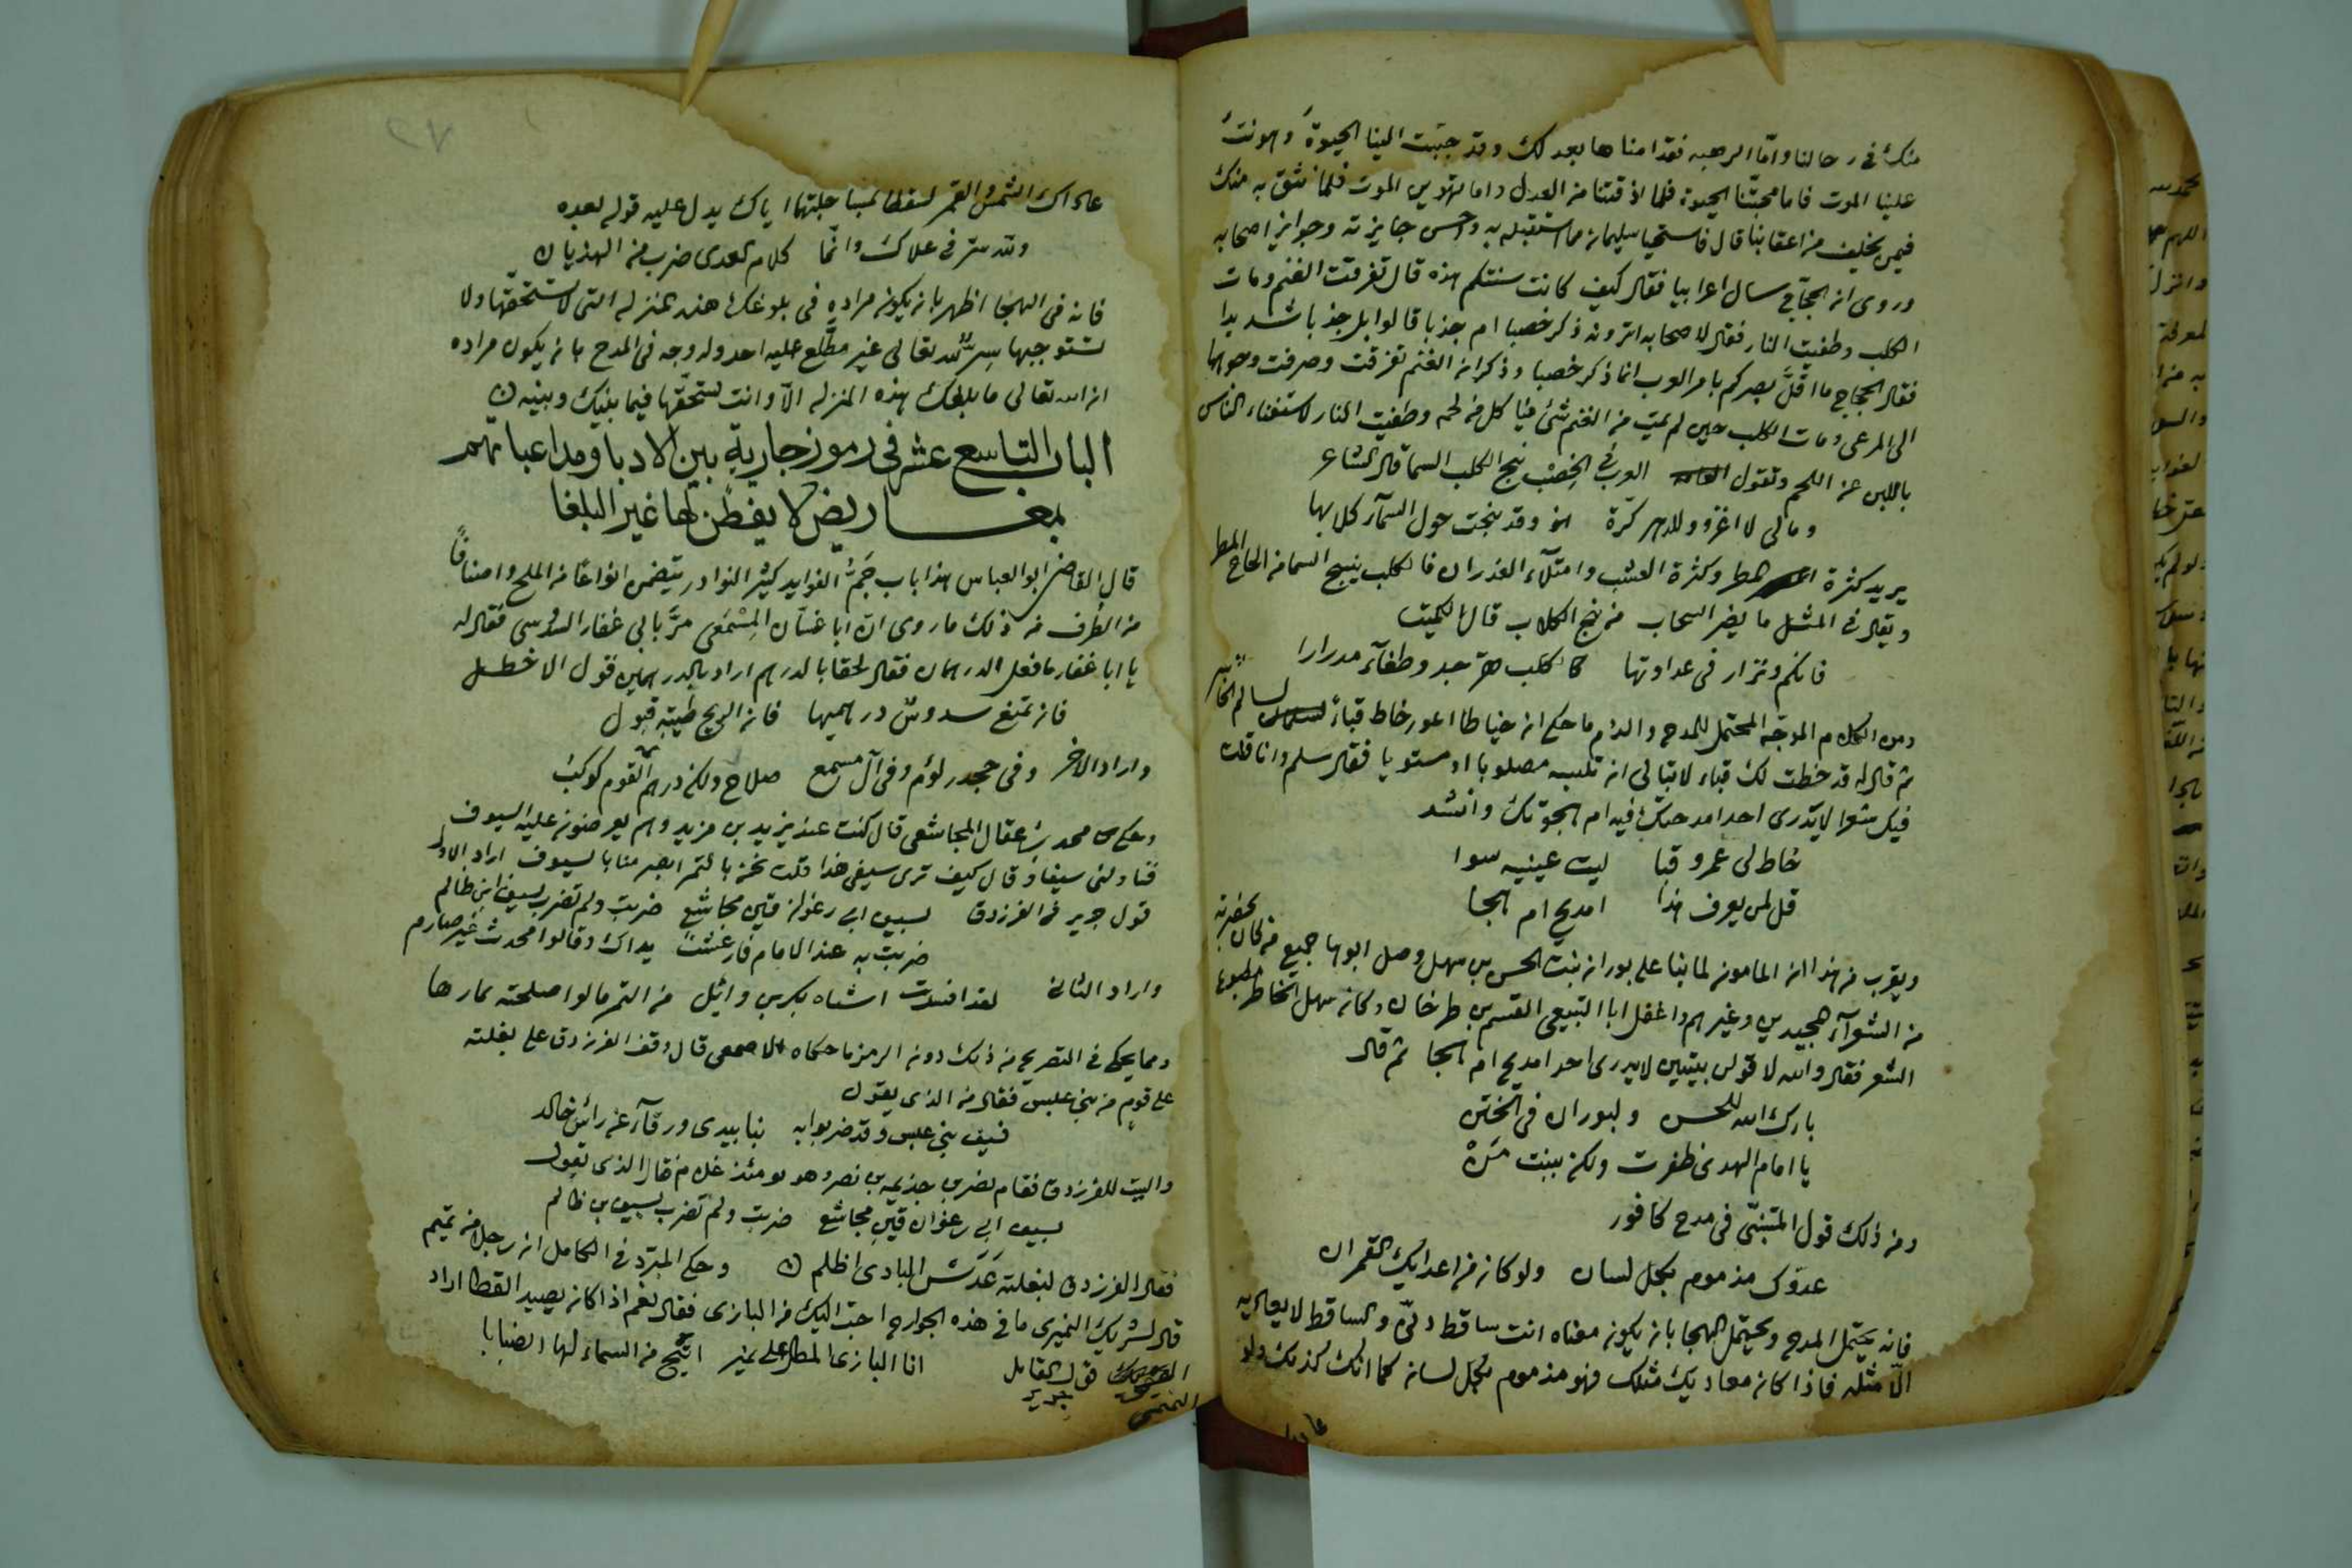 منك في رحالنا واما الرهبه فقد امنا ها بعدلك وقد حببت الينا الحيوة وهونت
علينا الموت فاما محبتنا الحيوة فلما اذقتنا من العدل واما تهوين الموت فلما نثق به منك
فيمن يخلف من اعقابنا قال فاستحيا سليمان مما استقبله به واحسن جايزته وجوايز اصحابه
وروى ان الحجاج سال اعرابيا فقال كيف كانت سنتكم هذه قال تفرقت الغنم ومات
الكلب وطفيت النار فقال لاصحابه اترونه ذكر خصبا ام جدبا قالوا بل جدبا شديدا
فقال الحجاج ما اقل بصركم بامر العرب انما ذكر خصبا وذكر ان الغنم تفرقت وصرفت وجوهها
الى المرعى ومات الكلب حين لم يمت من الغنم شئ فيا كل من لحمه وطفيت النار لاستغناء الناس
باللبن عن اللحم وتقول العرب في الخصب نبح الكلب السما قال الشاعر
ومالى لا اغزو وللدهر كرة وقد نبحت حول السمآء كلابها
يريد كثرة المطر وكثرة العشب وامتلآء الغدران فالكلب ينبح السما من الحاح المطر
ويقال في المثل ما يضر السحاب من نبح الكلاب قال الكميت
فانكم ونزار في عداوتها كالكلب هر جدا وطفآء مدرارا
ومن الكلام الموجه المحتمل للمدح والذم ما حكى ان خياطا اعور خاط قباءً لسالم الخاسر
ثم قال له قد خطت لك قباء لا تبالى ان تلبسه مقلوبا او مستويا فقال سلم وانا قلت
فيك شعرا لا يدرى احد امدحتك فيه ام هجوتك وانشد
خاط لى عمرو قبا ليت عينيه سوا
قل لمن يعرف هذا امديح ام هجا
ويقرب من هذا ان المامون لما بنا على بوران بنت الحسن بن سهل وصل ابوها جميع من كان بحضرته
من الشعرآء المجيدين وغيرهم واغفل ابا القسم بن طرخان وكان سهل الخاطر مطبوع
الشعر فقال والله لاقولن بيتين لا يدرى احد امديح ام هجا ثم قال
بارك الله للحسن ولبوران في الختن
يا امام الهدى ظفرت ولكن ببنت من
ومن ذلك قول المتنبى في مدح كافور
عدوك مذموم بكل لسان ولو كان من اعدايك القمران
فانه يحتمل المدح ويحتمل الهجا بان يكون معناه انت ساقط دنى والساقط لا يعاديه
الا مثله فاذا كان معاديك مثلك فهو مذموم بكل لسان كما انك كذلك ولو
عاداك
عاداك الشمس والقمر لسقطا بمساجلتهما اياك يدل عليه قوله بعده
ولله سر في علاك وانما كلام العدى ضرب من الهذيان
فانه في الهجا اظهر بان يكون مراده في بلوغك هذه المنزله التى لا تستحقها ولا
تستوجبها سر لله تعالى غير مطلع عليه احد وله وجه في المدح بان يكون مراده
ان الله تعالى ما بلغك هذه المنزله الا وانت تستحقها فيما بينك وبينه
الباب التاسع عشر في رموز جارية بين الادبا ومداعباتهم
بمعاريض لا يفطن لها غير البلغا
قال القاضى ابو العباس هذا باب جم الفوايد كثير النوادر يتضمن انواعا من الملح واصنافا
من الطرف من ذلك ما روى ان ابا غسان المسمعى مر بابى غفار السدوسى فقال له
يا ابا غفار ما فعل الدرهمان فقال لحقا بالدرهم اراد بالدرهمين قول الاخطل
فان تمنع سدوس درهميها فان الريح طيبة قبول
واراد الاخر وفي جحدر لؤم وفي آل مسمع صلاح ولكن درهم القوم كوكب
وحكى محمد بن عقال المجاشعى قال كنت عند يزيد بن مزيد وهم يعرضون عليه السيوف
فناولنى سيفا وقال كيف ترى سيفى هذا قلت نحن بالتمر ابصر منا بالسيوف اراد الاول
قول جرير في الفرزدق بسيف ابى رغوان قين مجاشع ضربت ولم تضرب بسيف ابن ظالم
ضربت به عند الامام فارعشت يداك وقالوا محدث غير صارم
واراد الثانى لقد افسدت استاه بكر بن وائل من التمر ما لو اصلحته لمارها
ومما يحكى في التصريح من ذلك دون الرمز ما حكاه الاصمعى قال وقف الفرزدق على بغلته
على قوم من بنى عبس فقال من الذى يقول
فسيف بنى عبس وقد ضربوا به نبا بيدى ورقآء عن رأس خالد
والبيت للفرزدق فقام نضر بن جذيمه بن نصر وهو يومئذ غلام فقال الذى يقول
بسيف ابى رغوان قين مجاشع ضربت ولم تضرب بسيف بن ظالم
فقال الفرزدق لبغلته عدس البادى اظلم وحكى المبرد في الكامل ان رجلا من تميم
قال لشريك النميرى ما في هذه الجوارح احب اليك من البازى فقال نعم اذا كان يصيد القطا اراد
التميمى قول القايل جرير انا البازى المطل على نمير اتيح من السماء لها انصبابا